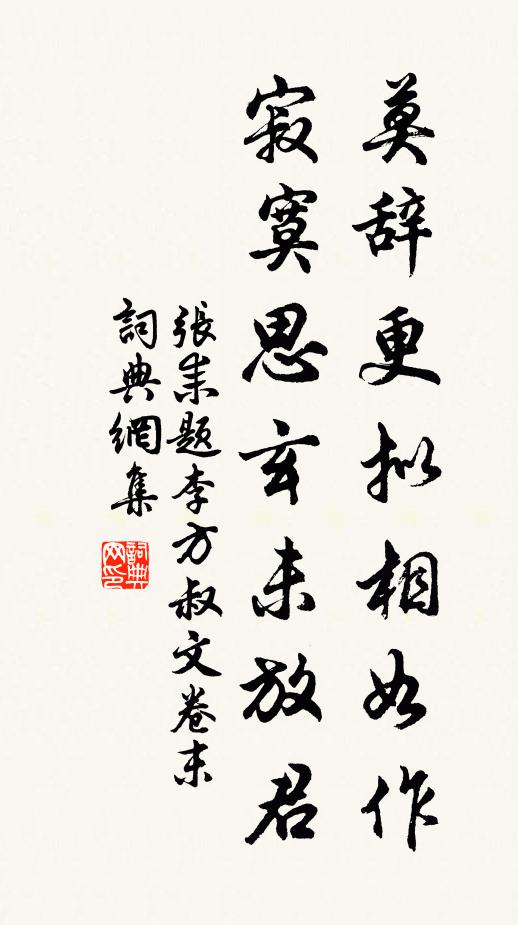 莫辞更拟相如作
寂寞思玄未放君
張耒題李方叔文卷末
詞典網集
詞典
网印